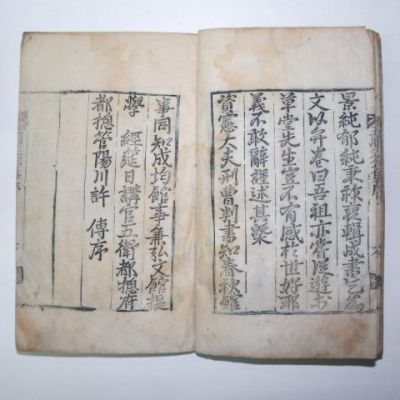 景純郁純秉裒輯成書乞爲
文以弁卷曰吾祖亦嘗從遊於
草堂先生寔不有感於世好耶
義不敢辭謹述其槩
資憲大夫刑曹判書知春秋館
事同知成均館事兼弘文館提
學 經筵日講官五衛都摠府
都摠管陽川許 傳序